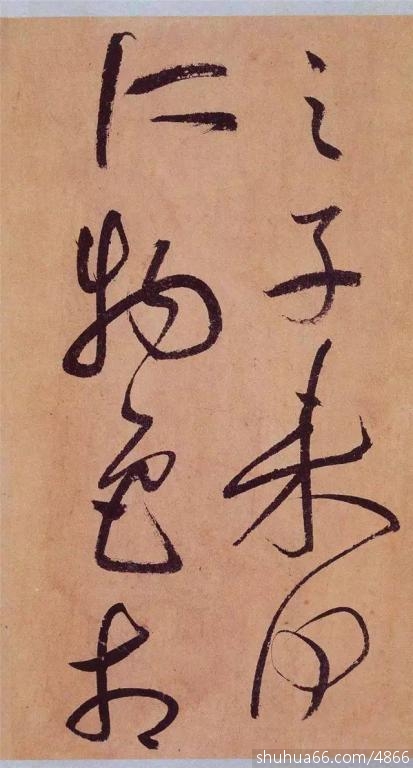 之子未同
仁物色相
shuhua66.com/4866